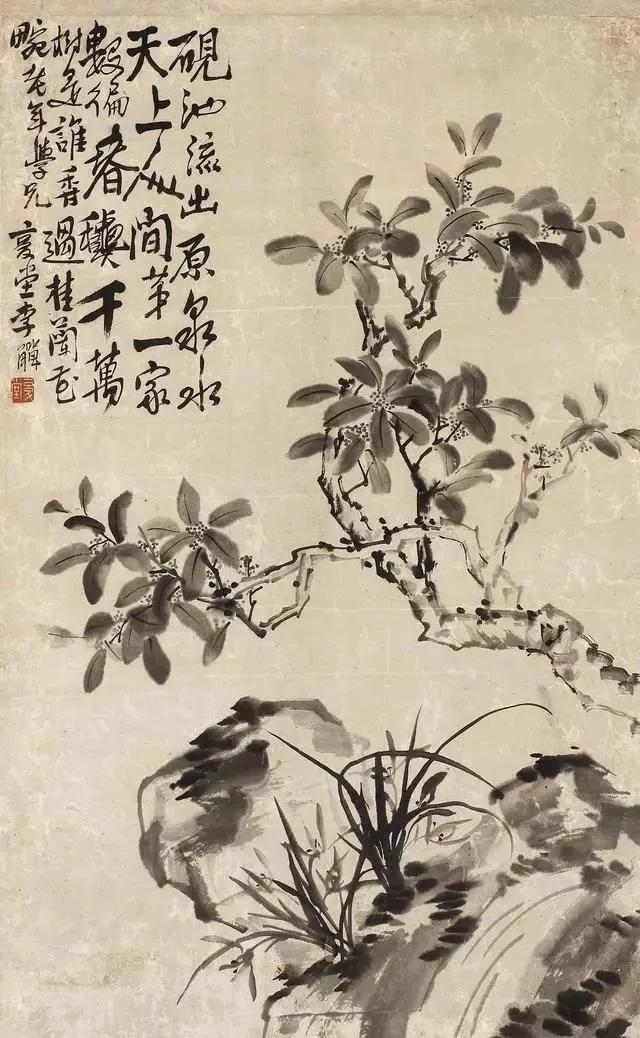 硯池流出原泉水
天上人間第一家
數徧春穠千萬
樹是誰香過桂蘭花
畹老年學兄 復堂李觶